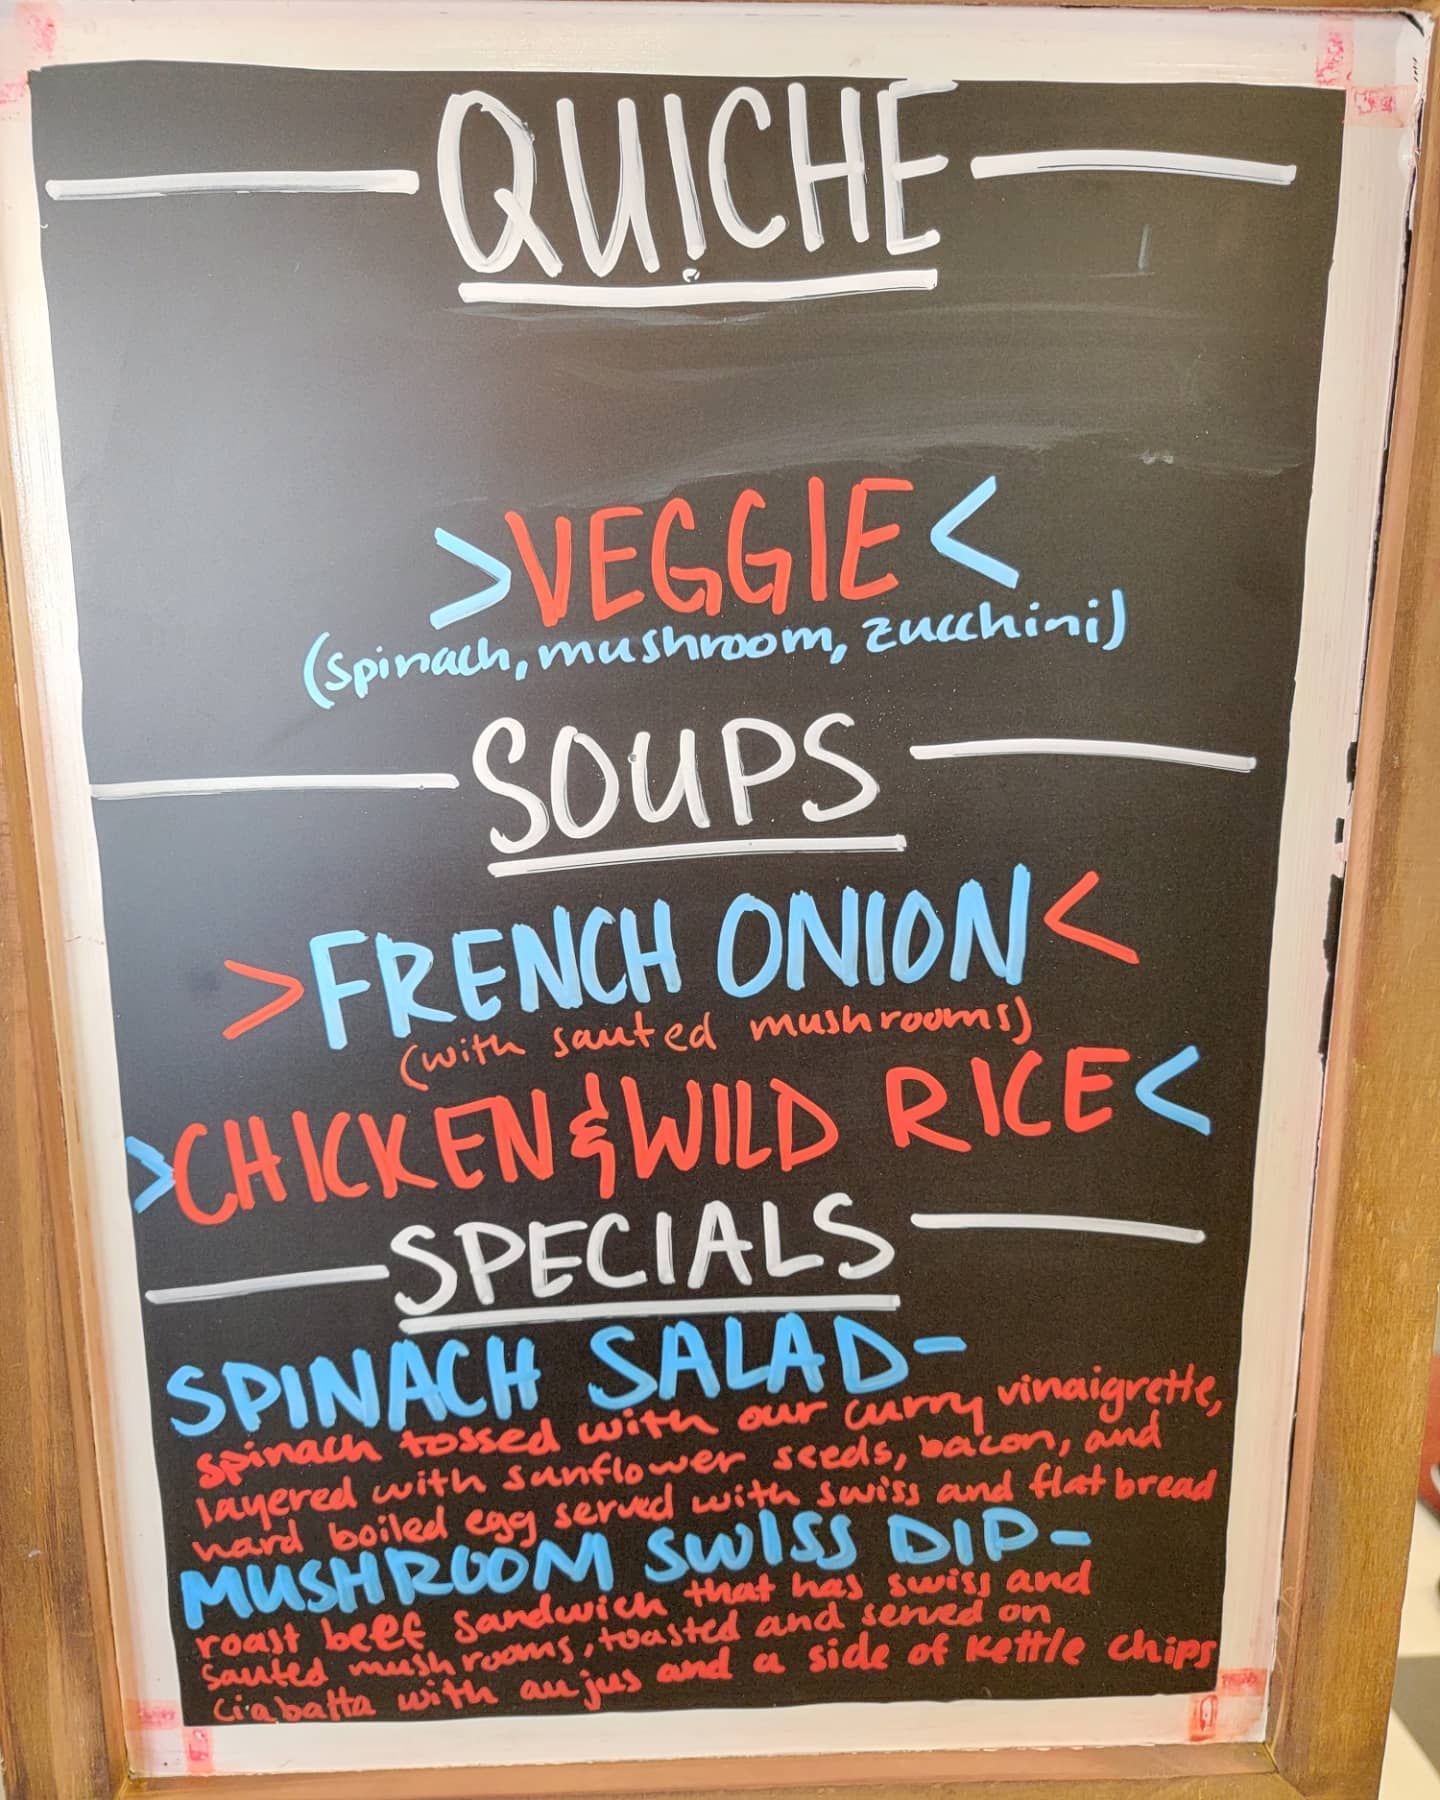 QUICHE
>VEGGIE<
(spinach, mushroom, zucchini)
SOUPS
>FRENCH ONION<
(with sauted mushrooms)
>CHICKEN & WILD RICE<
SPECIALS
SPINACH SALAD-
spinach tossed with our curry vinaigrette,
layered with sunflower seeds, bacon, and
hard boiled egg served with swiss and flat bread
MUSHROOM SWISS DIP-
roast beef sandwich that has swiss and
sauted mushrooms, toasted and served on
ciabatta with au jus and a side of Kettle Chips